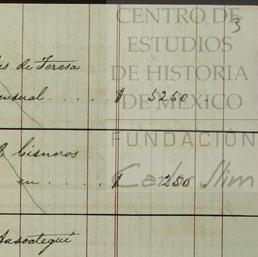 CENTRO DE
3
ESTUDIOS
de Teresa
DE HISTORIA
DE MÉXICO
$ 5250.
FUNDACIÓN
Cisneros
Carlos Slim
en $ 250.